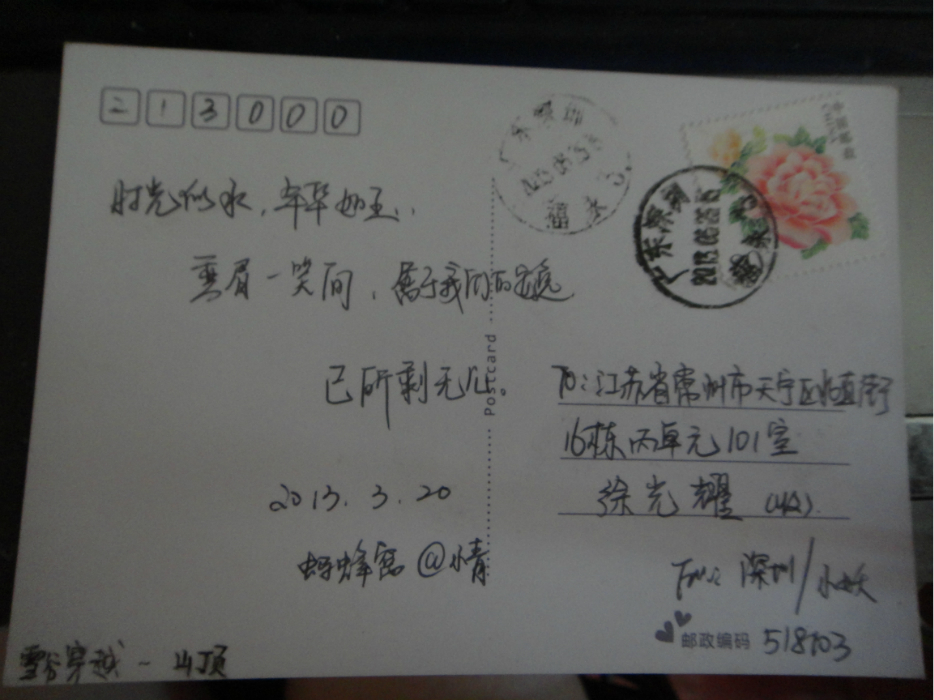 213000
时光似水，年华如玉，
弯眉一笑间，属于我们的
已所剩无几。
2013.3.20
蚂蜂窝@小青
雪谷穿越-山顶
Postcard
中国邮政
CHINA
广东深圳
2013.03.25
广东深圳
2013.03.25
TO:江苏省常州市天宁区北直街
16栋丙单元101室
徐光耀（收）
From: 深圳/小妖
邮政编码 518103